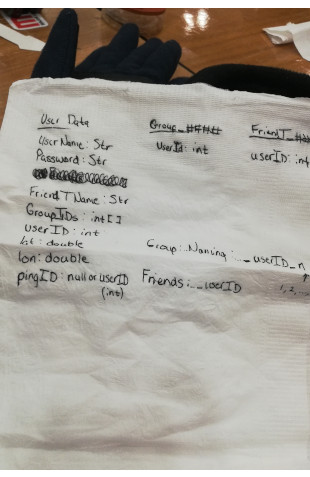 User Data
UserName: Str
Password: Str
FriendTName: Str
GroupIDs: int[]
userID: int
lat: double
lon: double
pingID: null or userID
(int)
Group_####
UserId: int
FriendT_##
userID: int
Group: Naming: _userID_n
1, 2, ...
Friends: _userID